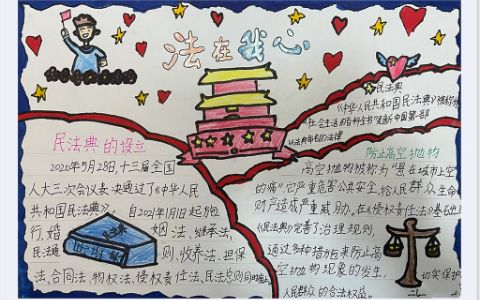 法在我心
民法典
《中华人民共和国民法典》被称为
"社会生活的百科全书"是新中国第一部
以法典命名的法律
民法典的设立
2020年5月28日,十三届全国
人大三次会议表决通过了《中华人民
共和国民法典》,自2021年1月1日起施
行,婚姻法、继承法、
民法通则、收养法、担保
法、合同法、物权法、侵权责任法、民法总则同时废止
防止高空抛物
高空抛物被称为"悬在城市上空
的痛",它严重危害公共安全,给人民群众生命
财产造成严重威胁,在《侵权责任法》基础上
《民法典》完善了治理规则,
通过多种措施来防止高
空抛物现象的发生,
切实保护
人民群众的合法权益